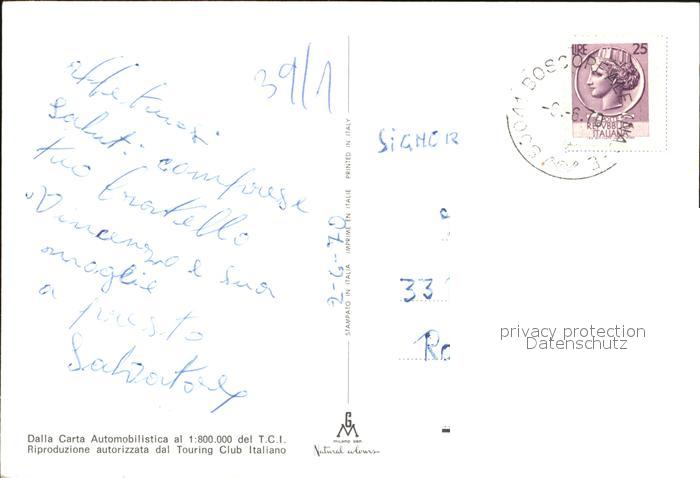 39/1
affettuosi
saluti comprese
tuo fratello
Vincenzo e sua
moglie
a presto
Salvatore
Dalla Carta Automobilistica al 1:800.000 del T.C.I.
Riproduzione autorizzata dal Touring Club Italiano
STAMPATO IN ITALIA IMPRIMÉ EN ITALIE PRINTED IN ITALY
2-6-70
GM
MILANO
Natural colours
LIRE 25
REPVBBLICA
ITALIANA
BOSCOREALE
6.70
SIGNOR
33
Ro
privacy protection
Datenschutz